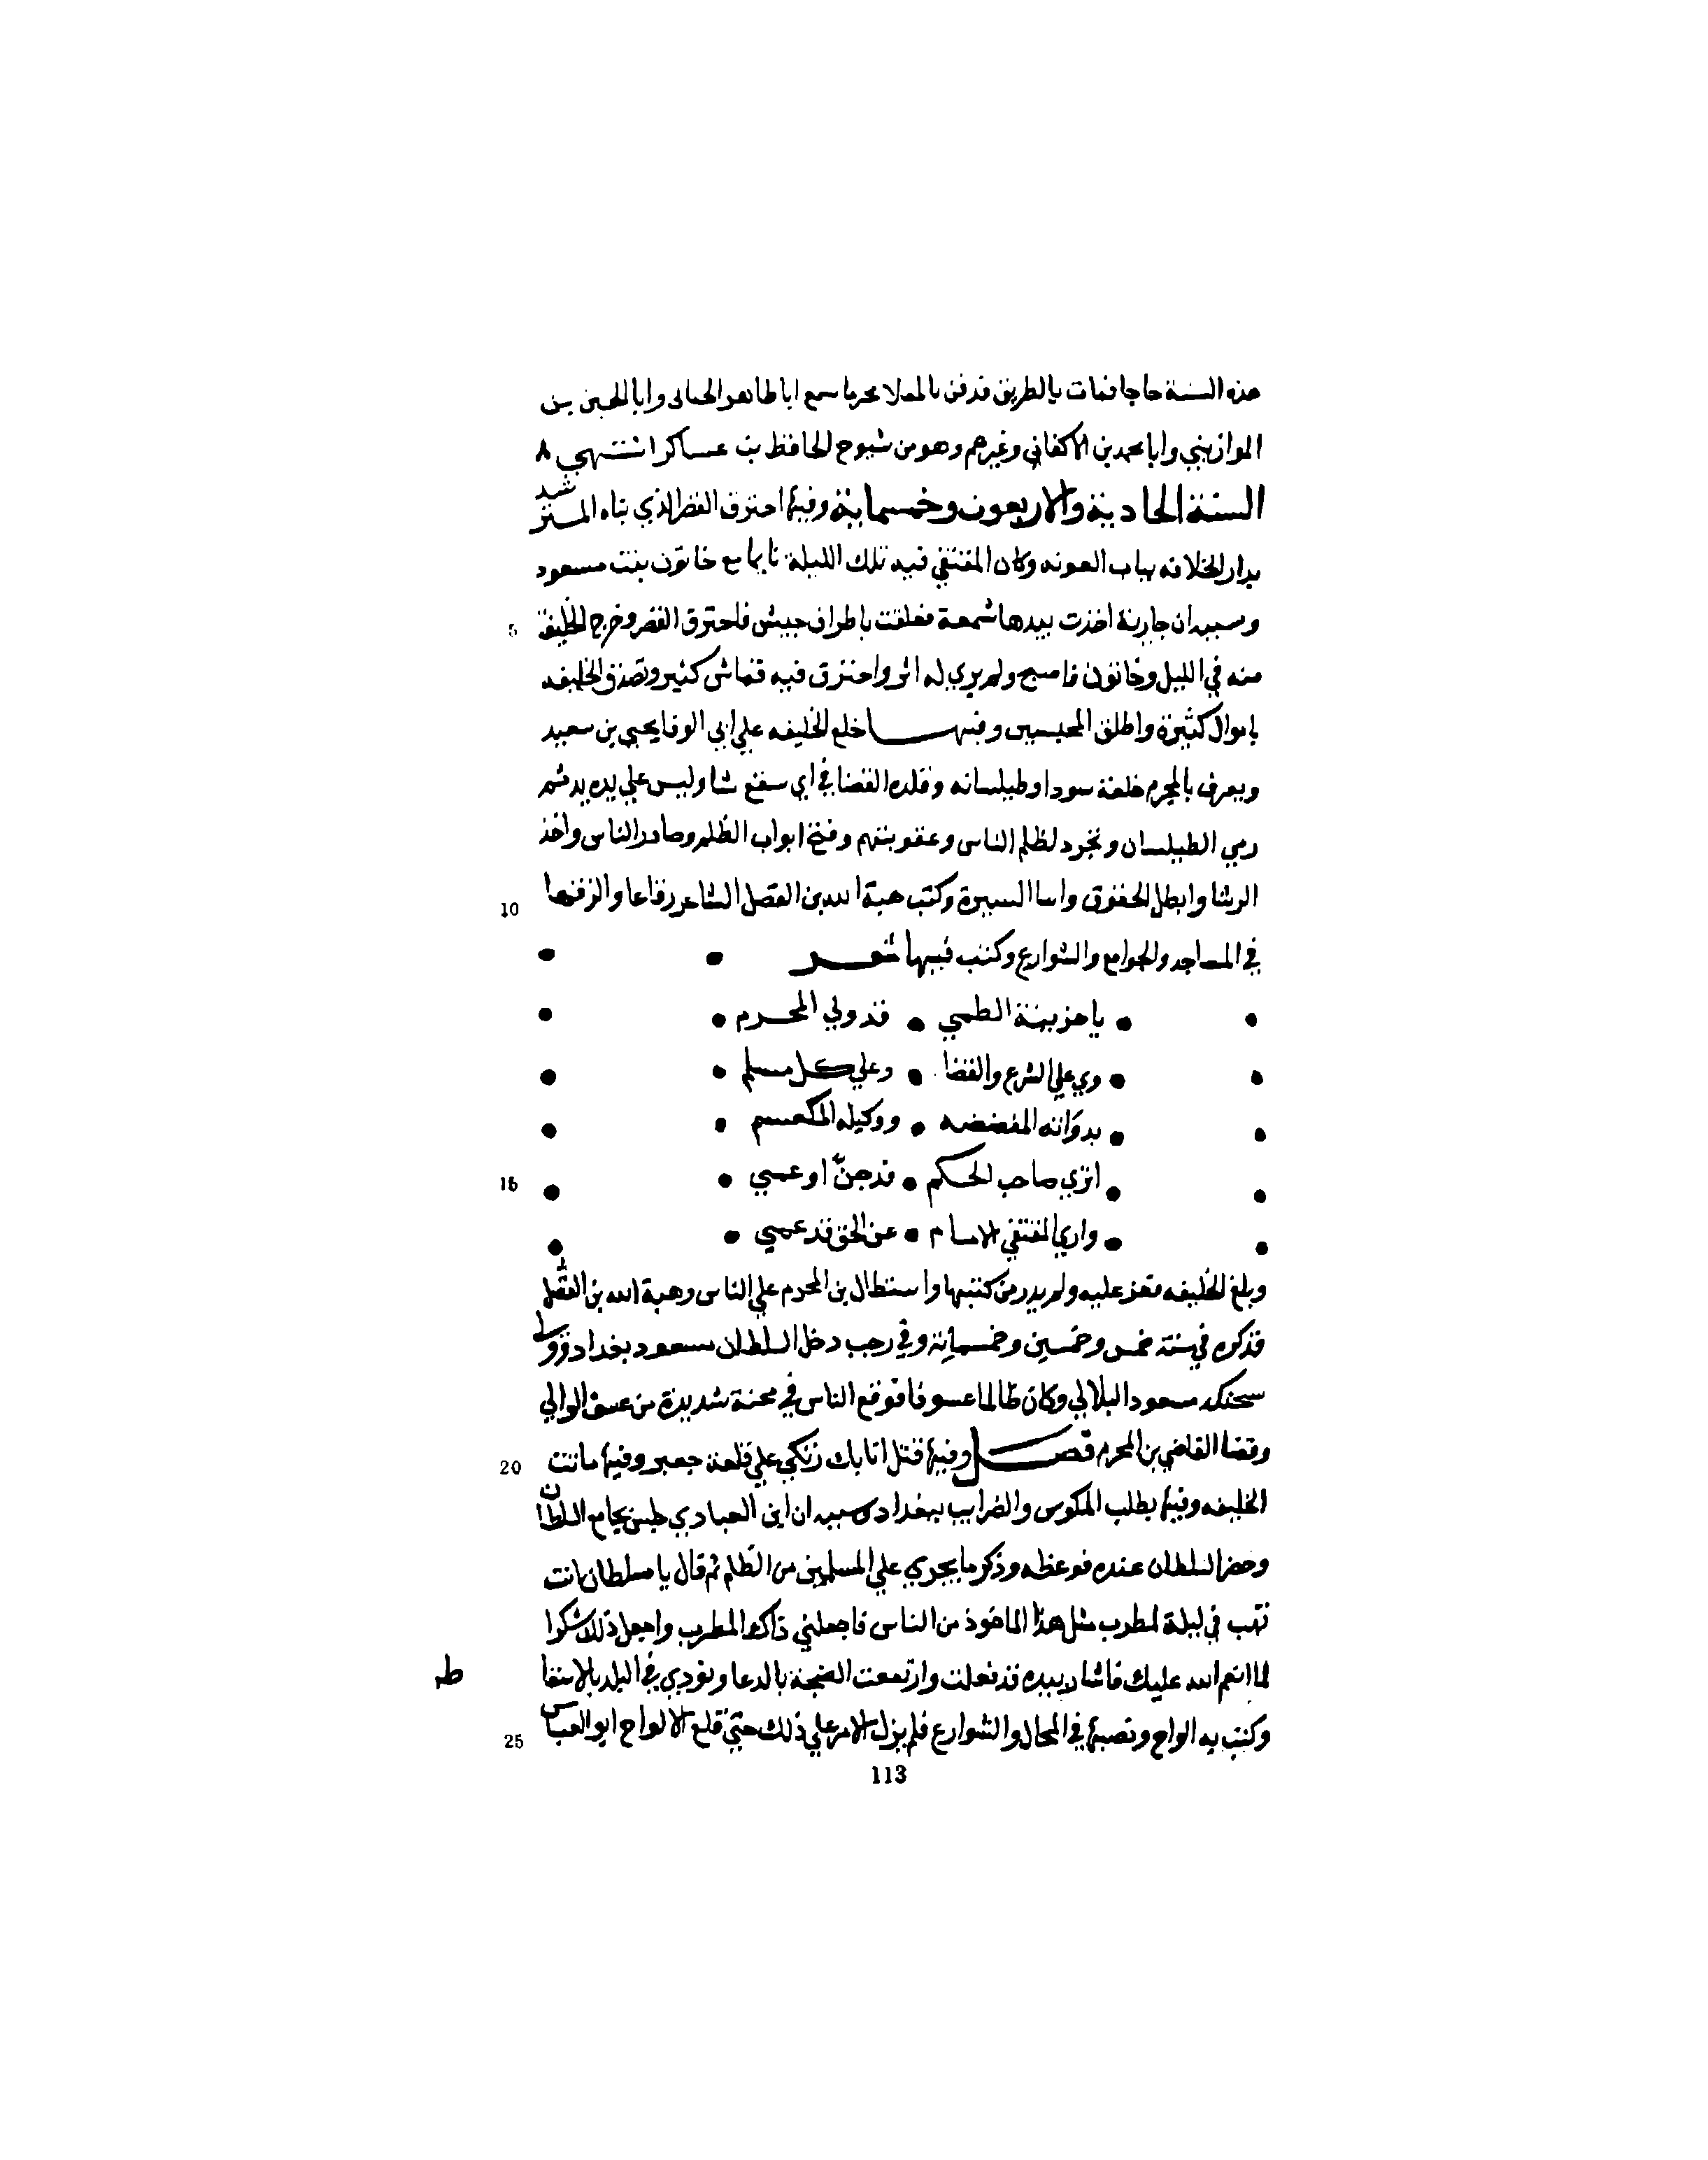 هذه السنة حاجا فمات بالطريق فدفن بالمعلا محرما سمع ابا طاهر الحنائى وابا الحسن بن
الموازيني وابا محمد بن الاكفاني وغيرهم وهو من شيوخ الحافظ بن عساكر انتهي
السنة الحادية والاربعون وخمسماية وفيها احترق القصر الذي بناه المسترشد
بدار الخلافه بباب الغربه وكان المقتفي فيه تلك الليلة نايما مع خاتون بنت مسعود
وسببه ان جارية اخذت بيدها شمعة فعلقت باطراف خيش فاحترق القصر وخرج الخليفة 5
منه في الليل وخاتون فاصبح ولم يري له اثر واحترق فيه قماش كثير وتصدق الخليفه
باموال كثيرة واطلق المحبسين وفيها خلع الخليفه علي ابي الوفا يحيي بن سعيد
ويعرف بالمخرم خلعة سودا وطيلسانه وقلده القضا في اي سقع شا وليس علي يده يد ثم
رمي الطيلسان وتجرد لظلم الناس وعقوبتهم وفتح ابواب الظلم وصادر الناس واخذ
الرشا وابطل الحقوق واسا السيرة وكتب هبة الله بن الفضل الشاعر رقاعا والزقها 10
في المساجد والجوامع والشوارع وكتب فيها شعر
يا حزينة الطمي • قد ولي المخرم
وي علي الشرع والقضا • وعلي كل مسلم
بدواته المفضضه • ووكيله المكعسم
اتري صاحب الحكم • قد جنّ او عمي 15
واري المقتفي الامام • عن الحق قد عمي
وبلغ الخليفه فعز عليه ولم يدر من كتبها واستطال بن المخرم علي الناس وهبة الله بن الفضل
نذكره في سنة خمس وخمسين وخمسماية وفي رجب دخل السلطان مسعود بغداد وولي
سحنكه مسعود البلالي وكان ظالما عسوفا فوقع الناس في محنة شديدة من عسف الوالي
وقضا القاضي بن المخرم فصل وفيها قتل اتابك زنكي علي قلعة جعبر وفيها ماتت 20
الخليفه وفيها بطلب المكوس والضرايب ببغداد وسببه ان ابن العبادي جلس بجامع السلطان
وحضر السلطان عنده فوعظه وذكر ما يجري علي المسلمين من الظلم ثم قال يا سلطان انت
تهب في ليلة لمطرب مثل هذا الماخوذ من الناس فاجعلني ذاك المطرب واجعل ذلك شكرا
لما انعم الله عليك فاشار بيده قد فعلت وارتفعت الضجة بالدعا ونودي في البلد بالاسقا
وكتب به الواح ونصبها في المحال والشوارع فلم يزل الامر علي ذلك حتي قلع الالواح ابو العباس 25
113